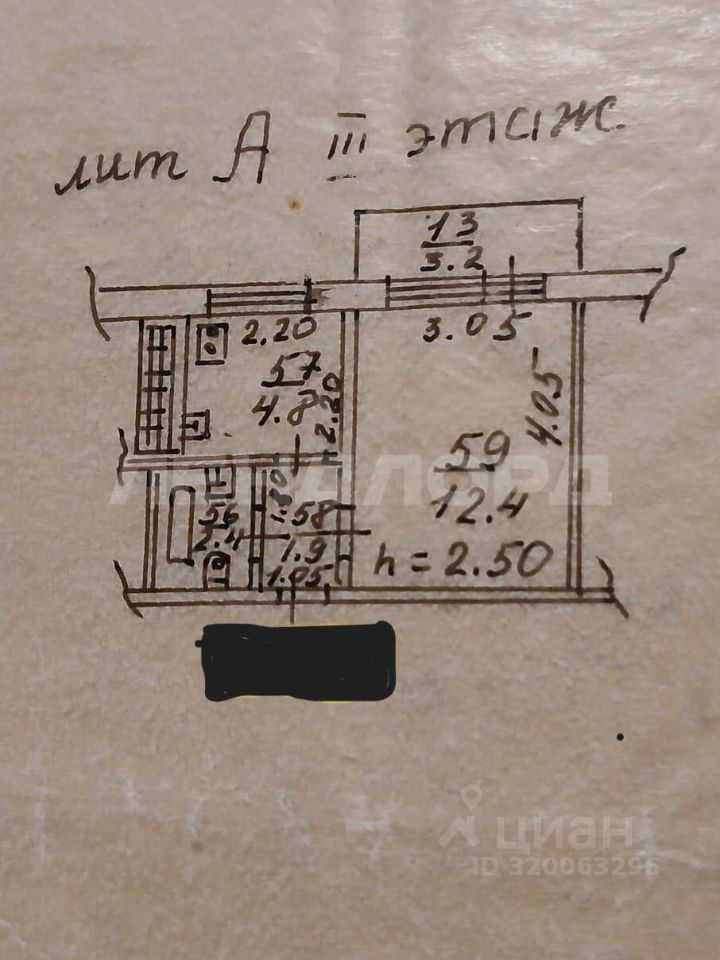 лит А III этаж
13
3.2
2.20
3.05
57
4.8
2.20
4.05
59
12.4
1.80
56
2.4
58
1.9
1.05
h = 2.50
циан
ID 320063296